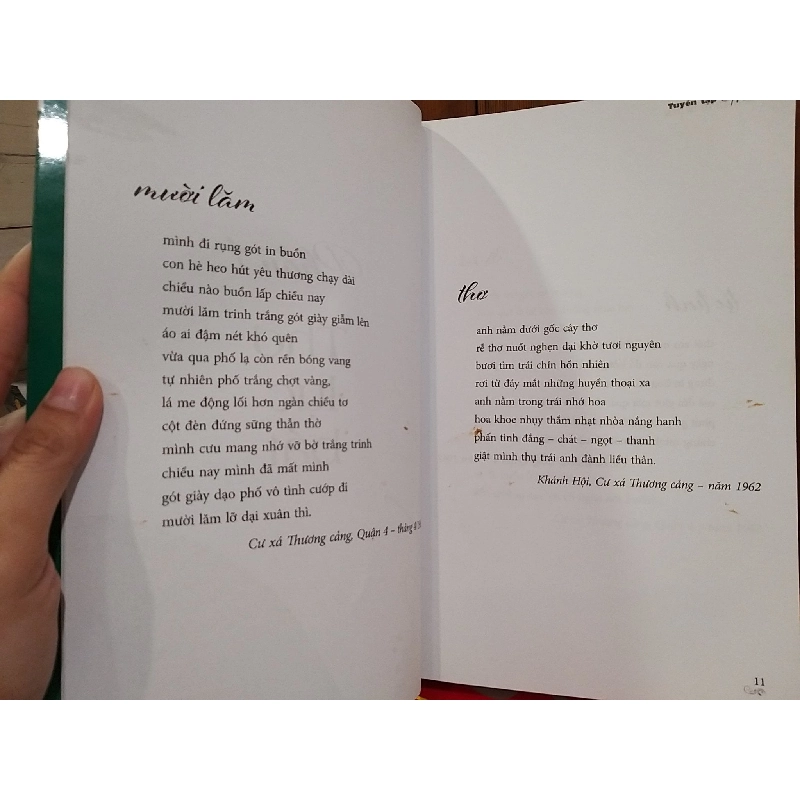 mười lăm
mình đi rụng gót in buồn
con hè heo hút yêu thương chạy dài
chiều nào buồn lấp chiều nay
mười lăm trinh trắng gót giày giẫm lên
áo ai đậm nét khó quên
vừa qua phố lạ còn rền bóng vang
tự nhiên phố trắng chợt vàng,
lá me động lối hơn ngàn chiều tơ
cột đèn đứng sững thẫn thờ
mình cưu mang nhớ vỡ bờ trắng trinh
chiều nay mình đã mất mình
gót giày dạo phố vô tình cướp đi
mười lăm lỡ dại xuân thì.
Cư xá Thương cảng, Quận 4 – tháng
Tuyển tập
thơ
anh nằm dưới gốc cây thơ
rễ thơ nuốt nghẹn dại khờ tươi nguyên
bươi tìm trái chín hồn nhiên
rơi từ đáy mắt những huyền thoại xa
anh nằm trong trái nhớ hoa
hoa khoe nhụy thắm nhạt nhòa nắng hanh
phấn tình đắng – chát – ngọt – thanh
giật mình thụ trái anh đành liều thân.
Khánh Hội, Cư xá Thương cảng – năm 1962
11